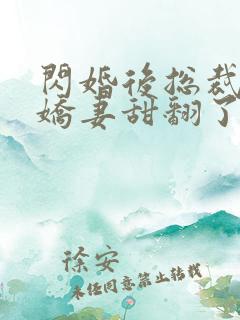 閃婚後總裁
嬌妻甜翻了
徐安
未經同意禁止轉載